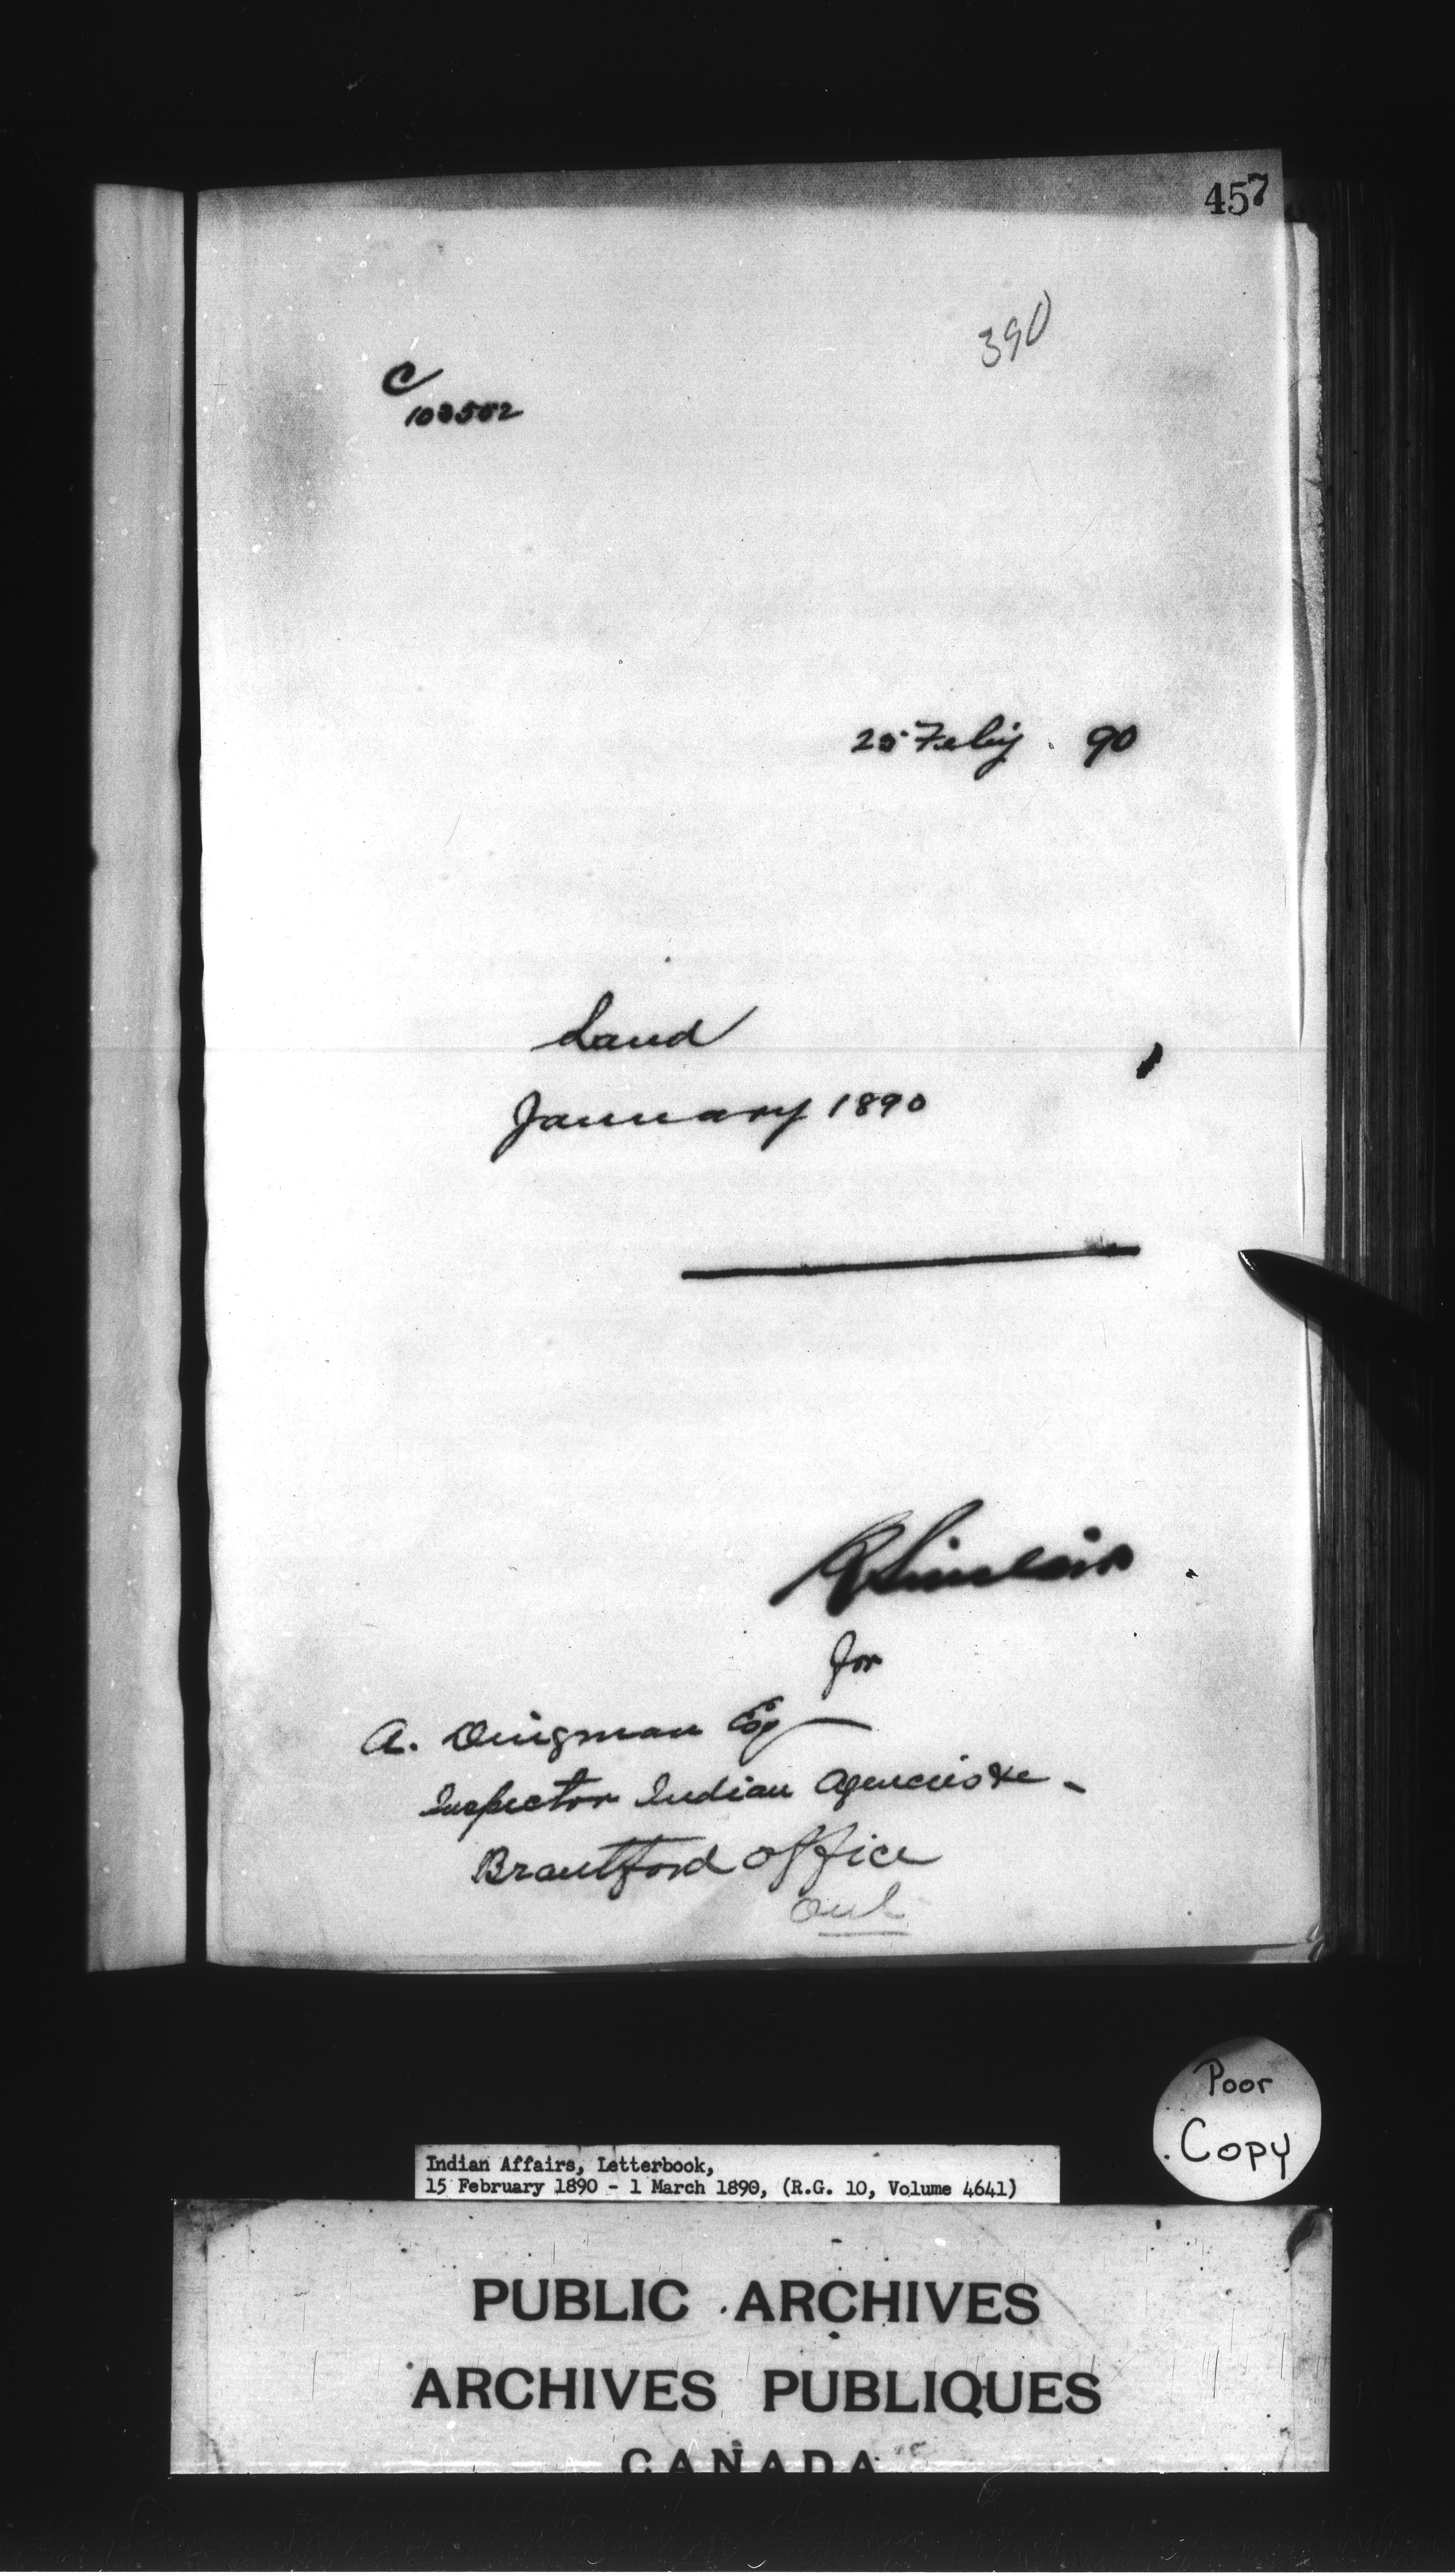 457
390
C
103502
25 Feby. 90
Land
January 1890
R Sinclair
for
A. Dingman Esq
Inspector Indian Agencies &c -
Brantford Office
Ont
Poor
Copy
Indian Affairs, Letterbook,
15 February 1890 - 1 March 1890, (R.G. 10, Volume 4641)
PUBLIC ARCHIVES
ARCHIVES PUBLIQUES
CANADA